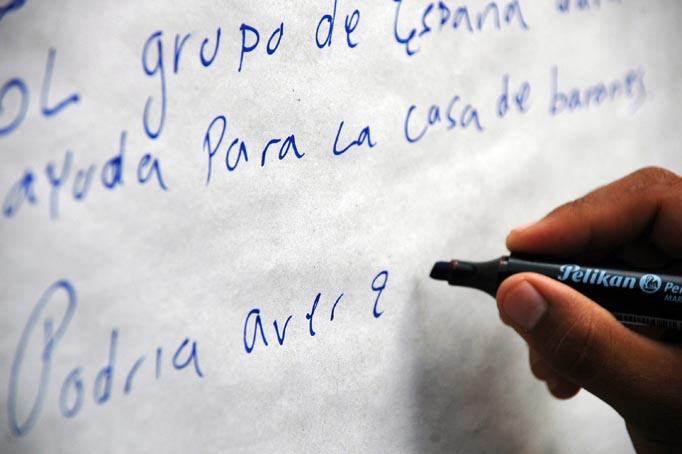 OL grupo de España
ayuda Para La casa de barones.
Podria aver
Pelikan